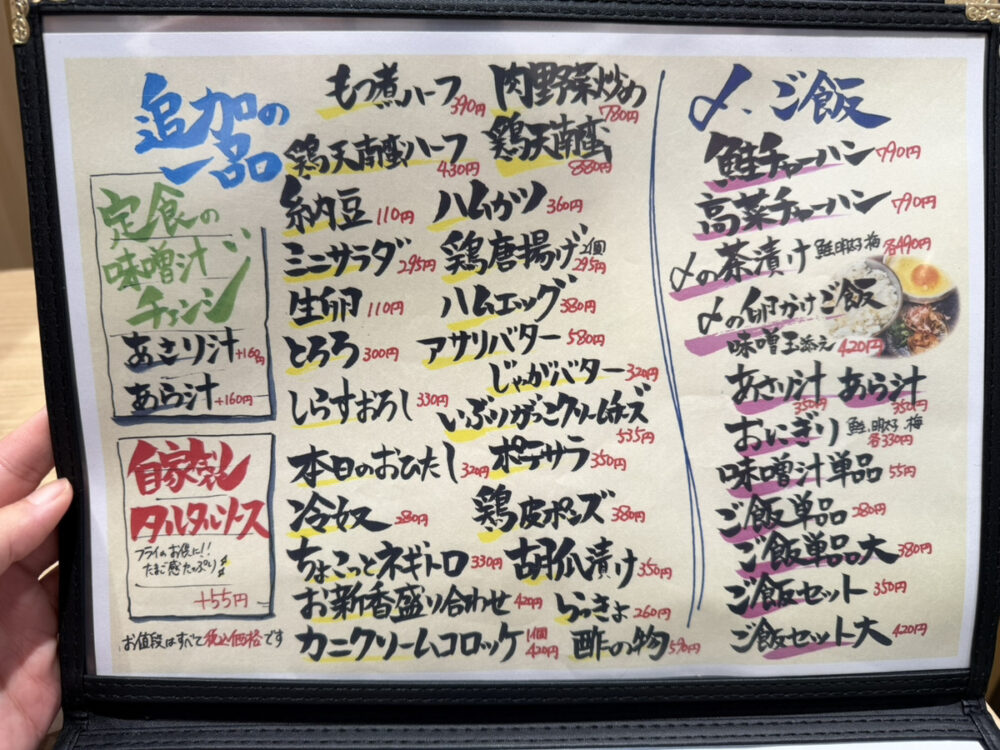 追加の
一品
定食の
味噌汁
チェンジ
あさり汁 +160円
あら汁 +160円
自家製
タルタルソース
フライのお供に!!
たまご感たっぷり
+55円
お値段はすべて税込価格です
もつ煮ハーフ 390円
肉野菜炒め 780円
鶏天南蛮ハーフ 430円
鶏天南蛮 880円
納豆 110円
ハムカツ 360円
ミニサラダ 295円
鶏唐揚げ 2個 295円
生卵 110円
ハムエッグ 380円
とろろ 300円
アサリバター 580円
じゃがバター 320円
しらすおろし 330円
いぶりがっこクリームチーズ 535円
本日のおひたし 320円
ポテサラ 350円
冷奴 280円
鶏皮ポンズ 380円
ちょこっとネギトロ 330円
胡瓜漬け 350円
お新香盛り合わせ 420円
らっきょ 260円
カニクリームコロッケ 1個 420円
酢の物 590円
〆、ご飯
鮭チャーハン 790円
高菜チャーハン 790円
〆の茶漬け 鮭 明太子 梅 各490円
〆の卵かけご飯
味噌玉添え 420円
あさり汁 350円 あら汁 350円
おにぎり 鮭、明太子、梅 各330円
味噌汁単品 55円
ご飯単品 280円
ご飯単品大 380円
ご飯セット 350円
ご飯セット大 420円